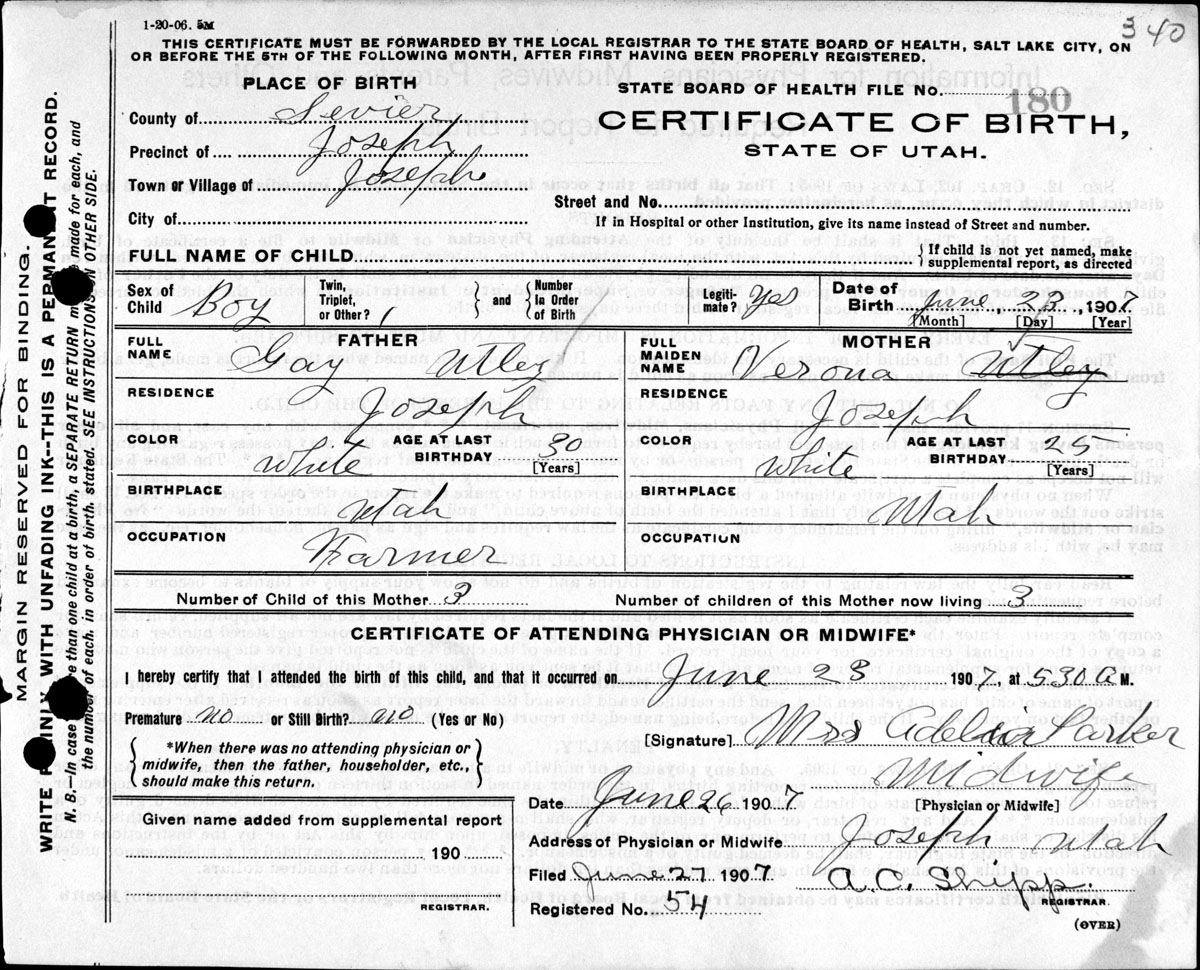 1-20-06. 5M
340
THIS CERTIFICATE MUST BE FORWARDED BY THE LOCAL REGISTRAR TO THE STATE BOARD OF HEALTH, SALT LAKE CITY, ON
OR BEFORE THE 5TH OF THE FOLLOWING MONTH, AFTER FIRST HAVING BEEN PROPERLY REGISTERED.
PLACE OF BIRTH
County of Sevier
Precinct of Joseph
Town or Village of Joseph
City of
STATE BOARD OF HEALTH FILE No. 180
CERTIFICATE OF BIRTH,
STATE OF UTAH.
Street and No.
If in Hospital or other Institution, give its name instead of Street and number.
FULL NAME OF CHILD
{ If child is not yet named, make
supplemental report, as directed
Sex of Child Boy
Twin, Triplet, or Other?
{ and { Number In Order of Birth
Legiti-mate? Yes
Date of Birth June 190
[Month] [Day] [Year]
FATHER
FULL NAME Gay Utley
RESIDENCE Joseph
COLOR White
AGE AT LAST BIRTHDAY 30
[Years]
BIRTHPLACE Utah
OCCUPATION Farmer
MOTHER
FULL MAIDEN NAME Verona Utley
RESIDENCE Joseph
COLOR White
AGE AT LAST BIRTHDAY 25
[Years]
BIRTHPLACE Utah
OCCUPATION
Number of Child of this Mother 3
Number of children of this Mother now living 3
CERTIFICATE OF ATTENDING PHYSICIAN OR MIDWIFE*
I hereby certify that I attended the birth of this child, and that it occurred on June 23 1907, at 530 a M.
Premature no or Still Birth? no (Yes or No)
{ *When there was no attending physician or
midwife, then the father, householder, etc.,
should make this return. }
[Signature] Parker
Midwife
[Physician or Midwife]
Date June 26 1907
Given name added from supplemental report
190
REGISTRAR.
Address of Physician or Midwife Joseph Utah
Filed June 27 1907
A.C. Shipp.
REGISTRAR.
Registered No. 54
(OVER)
MARGIN RESERVED FOR BINDING
WRITE PLAINLY WITH UNFADING INK--THIS IS A PERMANENT RECORD.
N. B.—In case of more than one child at a birth, a SEPARATE RETURN must be made for each, and
the number of each, in order of birth, stated. SEE INSTRUCTIONS ON OTHER SIDE.